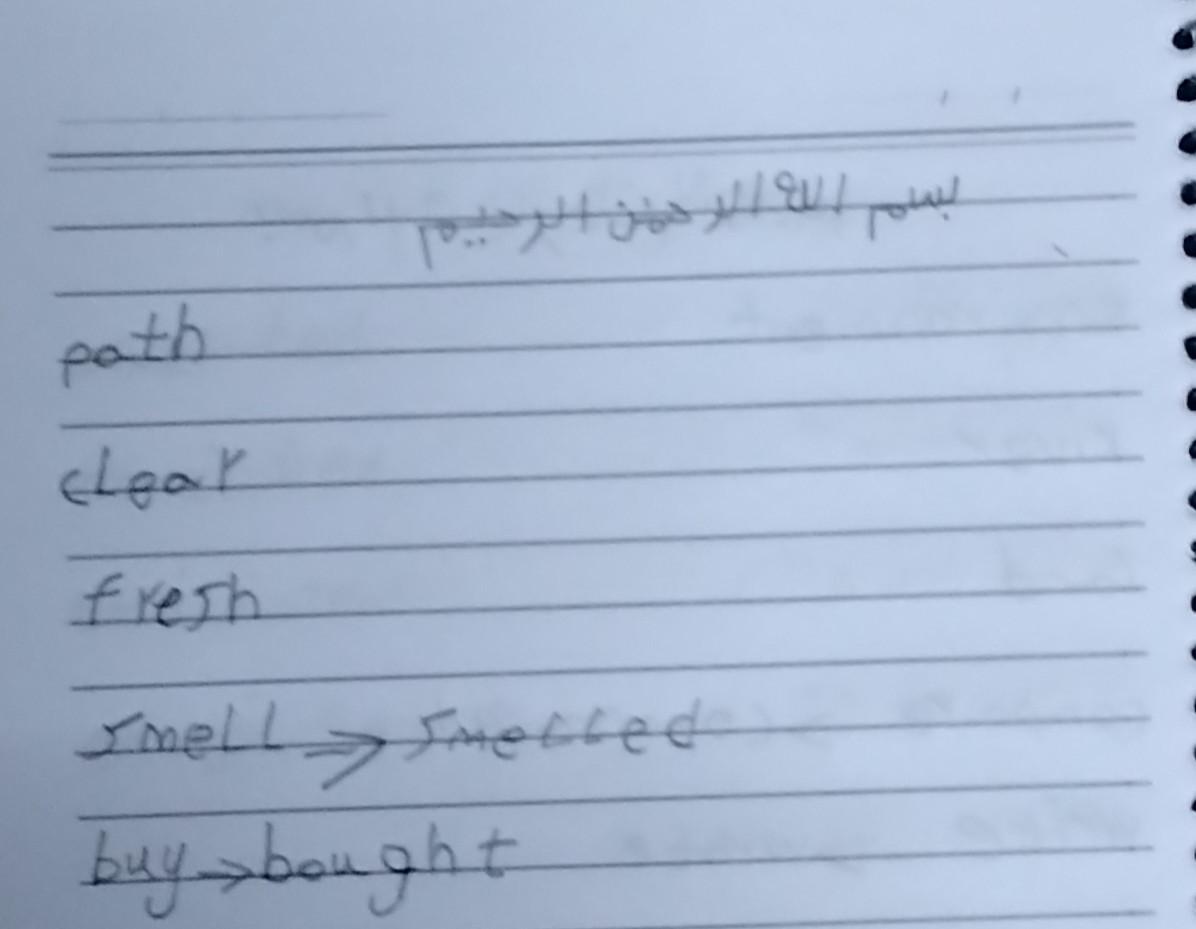 بسم الله الرحمن الرحيم
path
clear
fresh
smell ⇒ smelled
buy → bought